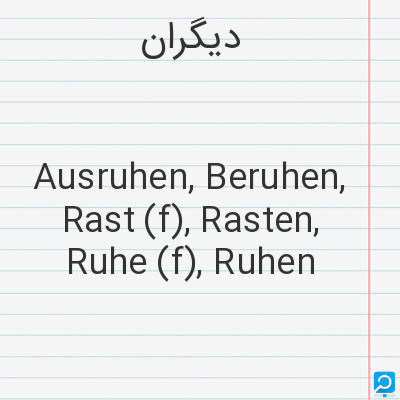 دیگران
Ausruhen, Beruhen,
Rast (f), Rasten,
Ruhe (f), Ruhen